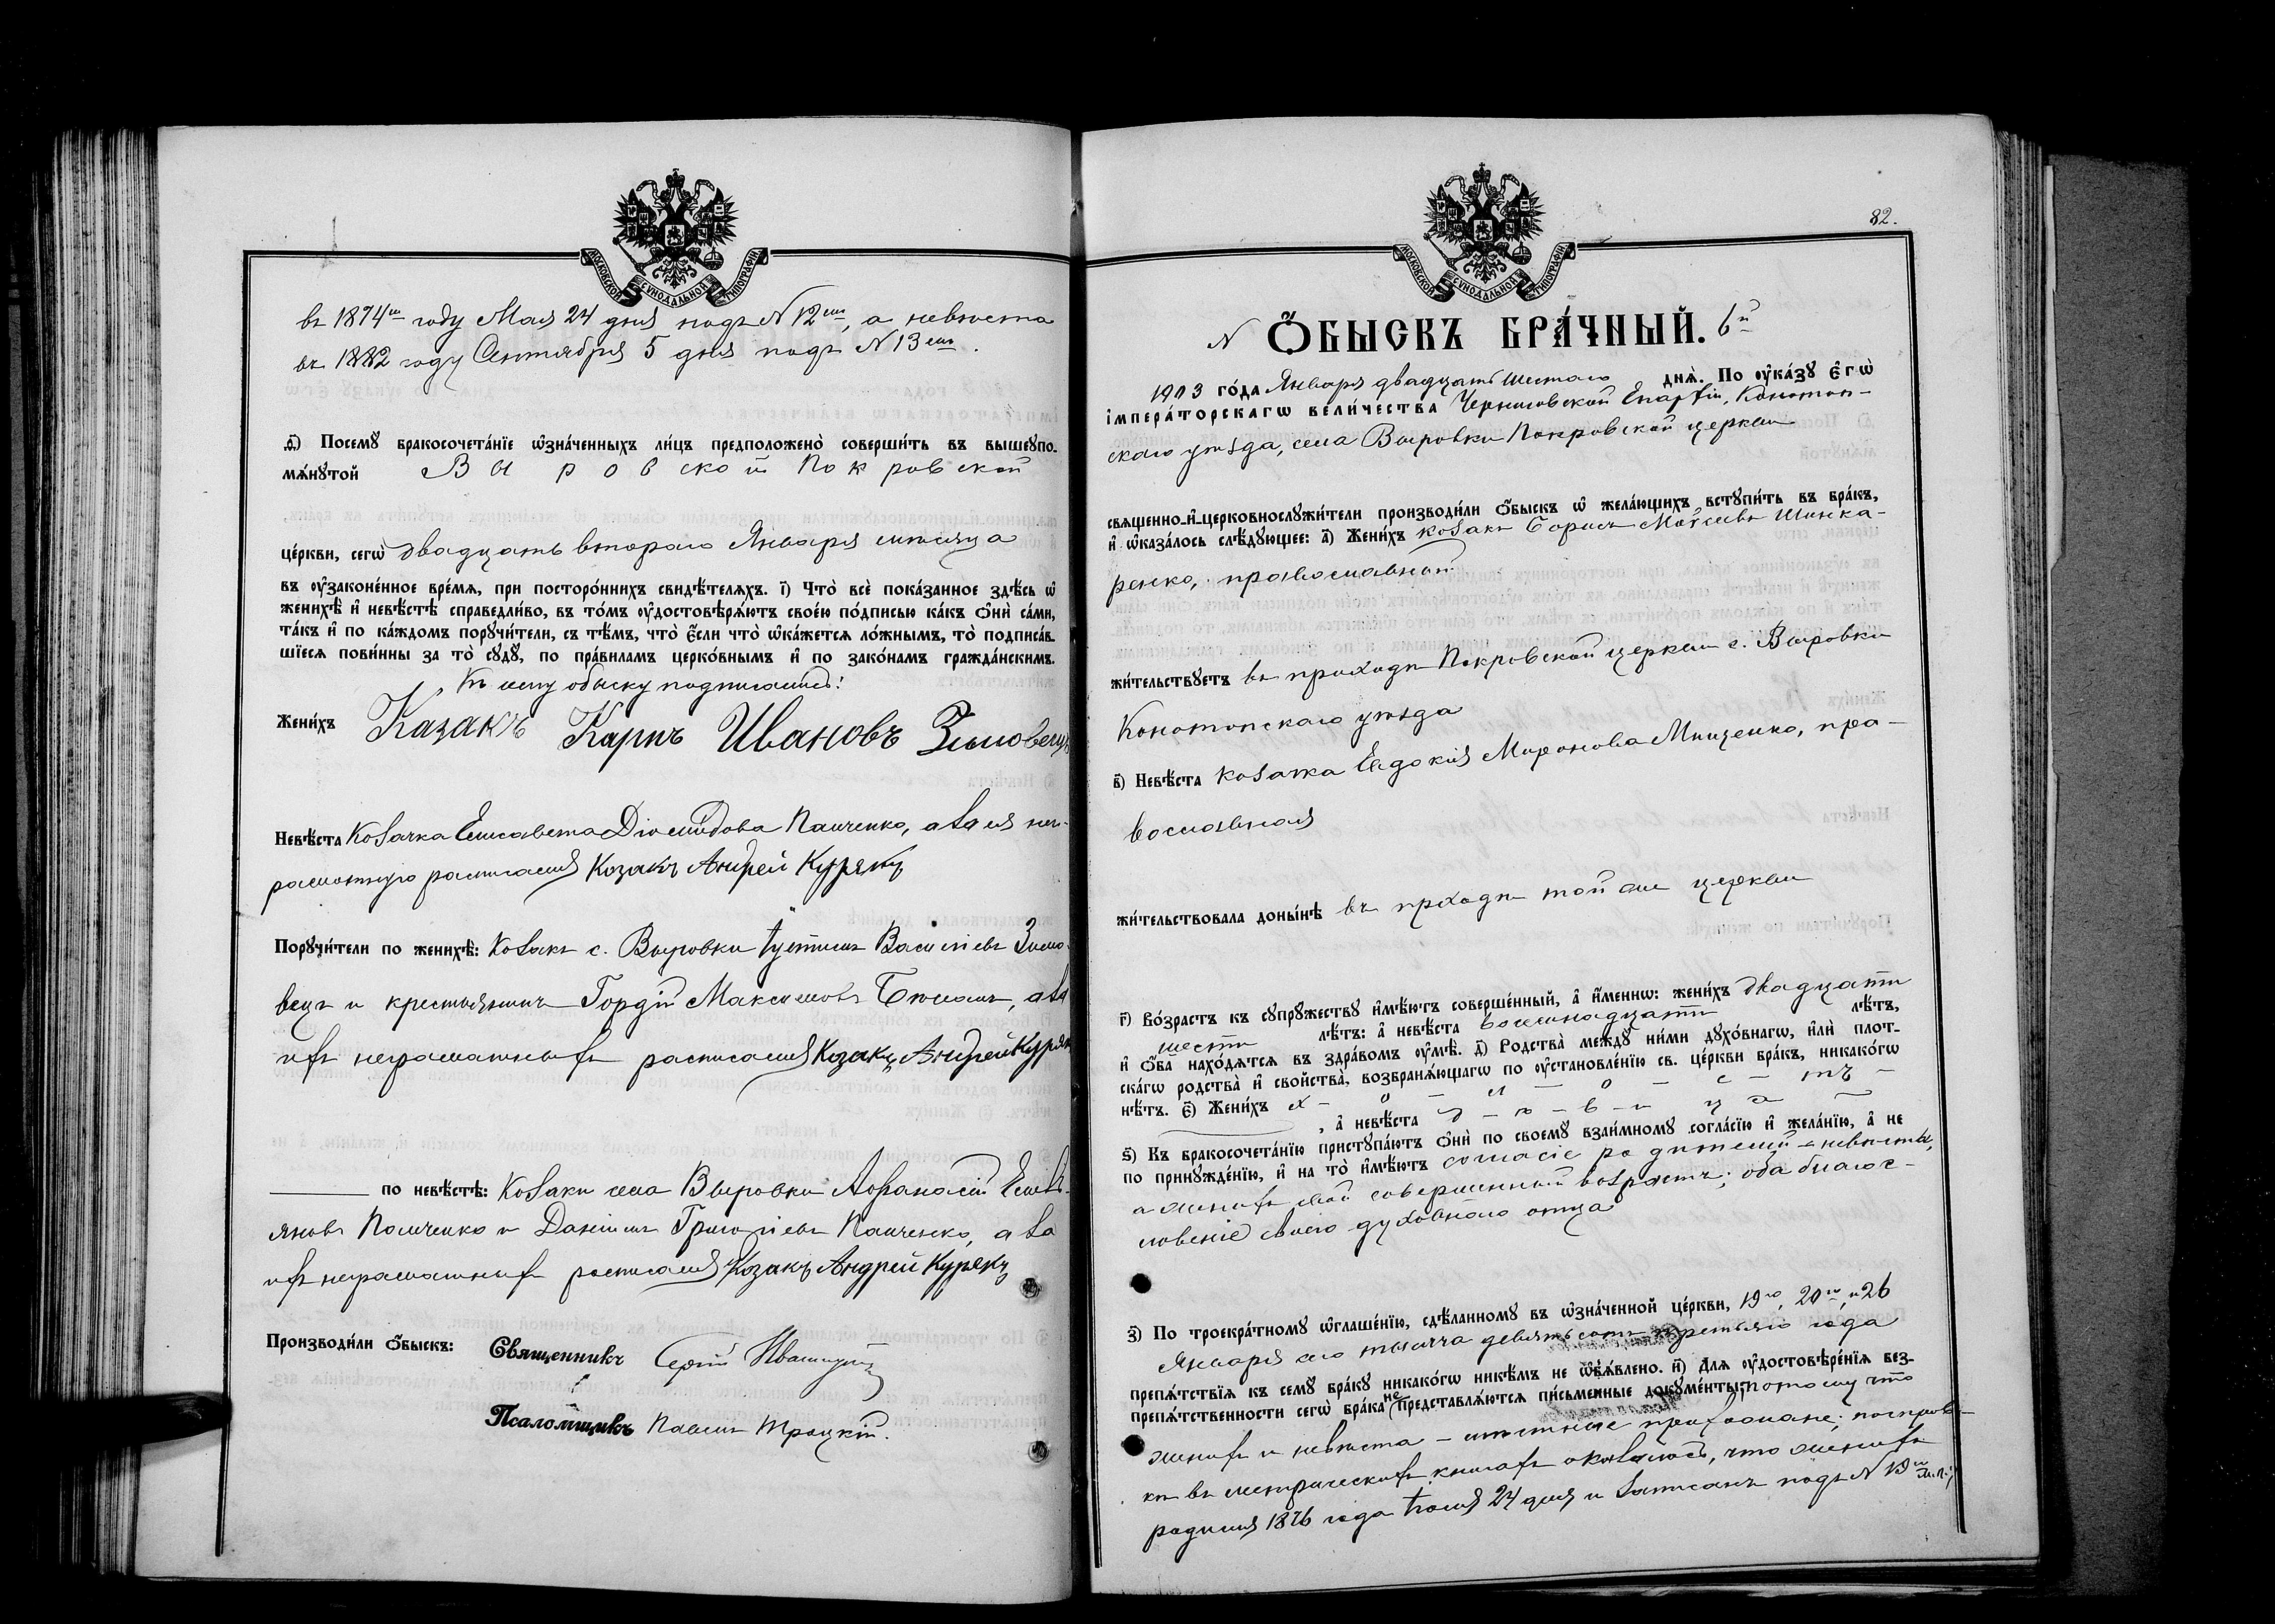 МОСКОВСКОЙ СѴНОДАЛЬНОЙ ТИПОГРАФІИ
въ 1874м году Мая 24 дня подъ N 12мъ, а невѣста
въ 1882 году Сентября 5 дня подъ N 13мъ.
ѳ҃) Посемꙋ бракосочета́нїе ѡ҆зна́ченныхъ ли́цъ предположено̀ соверши́ть въ вышеꙋпо-
мѧ́нꙋтой Выровской Покровской
це́ркви, сегѡ̀ двадцать втораго Января мѣсяца
въ ᲂу҆законе́нное вре́мѧ, при посторо́ннихъ свидѣ́телѧхъ. і҃) Что̀ всѐ пока́занное здѣ́сь ѡ҆
женихѣ̀ и҆ невѣ́стѣ справедли́во, въ то́мъ ᲂу҆достовѣрѧ́ютъ свое́ю по́дписью ка́къ ѻ҆нѝ са́ми,
та́къ и҆ по ка́ждомъ порꙋчи́тели, съ тѣ́мъ, что̀ є҆́сли что̀ ѡ҆ка́жетсѧ ло́жнымъ, то̀ подписа́в-
шїесѧ пови́нны за то̀ сꙋдꙋ̀, по пра́виламъ церко́внымъ и҆ по зако́намъ гражда́нскимъ.
Къ сему обыску подписались:
Жени́хъ Казакъ Карпъ Ивановъ Зимовецъ
Невѣ́ста Козачка Елисавета Діомидова Панченко, а за нея негра-
мотную расписался Козакъ Андрей Курята
Порꙋчи́тели по женихѣ̀: Козакъ с. Выровки Іустинъ Василіевъ Зимо-
вецъ и крестьянинъ Гордій Максимовъ, а за
ихъ неграмотныхъ расписался Козакъ Андрей
по невѣ́стѣ: Козаки села Выровки Аѳанасій Емель-
яновъ Панченко и Даніилъ Григоріевъ Панченко, а за
ихъ неграмотныхъ расписался Козакъ Андрей
Производи́ли ѻ҆́быскъ: Священникъ Сергій
Псаломщикъ Павелъ Троцкій.
82.
МОСКОВСКОЙ СѴНОДАЛЬНОЙ ТИПОГРАФІИ
N Ѻ҆́БЫСКЪ БРА́ЧНЫЙ. 6й
1903 го́да Января двадцать шестаго днѧ̀. По ᲂу҆ка́зꙋ є҆гѡ̀
і҆мпера́торскагѡ вели́чества Черниговской Епархіи, Конотоп-
скаго уѣзда, села Выровки Покровской церкви
свѧщенно-и҆-церковнослꙋжи́тели производи́ли ѻ҆́быскъ ѡ҆ жела́ющихъ встꙋпи́ть въ бра́къ,
и҆ ѡ҆каза́лось слѣ́дꙋющее: а҃) Жени́хъ козакъ Борисъ Моѵсеевъ Шинка-
ренко, православный
жи́тельствꙋетъ въ приходѣ Покровской церкви с. Выровки
Конотопскаго уѣзда
в҃) Невѣ́ста козачка Евдокія Миронова Мищенко, пра-
вославная
жи́тельствовала доны́нѣ въ приходѣ той же церкви
г҃) Во́зрастъ къ сꙋпрꙋ́жествꙋ и҆мѣ́ютъ соверше́нный, а҆ и҆́меннѡ: жени́хъ двадцати
шести лѣ́тъ: а҆ невѣ́ста восемнадцати лѣ́тъ,
и҆ ѻ҆́ба нахо́дѧтсѧ въ здра́вомъ ᲂу҆мѣ̀. д҃) Родства̀ междꙋ̀ ни́ми дꙋхо́внагѡ, и҆лѝ плот-
ска́гѡ родства̀ и҆ свойства̀, возбранѧ́ющагѡ по ᲂу҆становле́нїю св. це́ркви бра́къ, никако́гѡ
нѣ́тъ. є҃) Жени́хъ х - о - л - о - с - тъ -
, а҆ невѣ́ста д - ѣ - в - и ц а
ѕ҃) Къ бракосочета́нїю пристꙋпа́ютъ ѻ҆нѝ по своемꙋ̀ взаи́мномꙋ согла́сїю и҆ жела́нїю, а҆ не
по принꙋжде́нїю, и҆ на то̀ и҆мѣ́ютъ согласіе родителей - невѣста,
а женихъ свой совершенный возрастъ; оба благос-
ловеніе своего духовнаго отца
з҃) По троекра́тномꙋ ѡ҆глаше́нїю, сдѣ́ланномꙋ въ ѡ҆зна́ченной це́ркви, 19го, 20го, и 26
Января сего тысяча девятьсотъ третьяго года
препѧ́тствїѧ къ семꙋ̀ бра́кꙋ никако́гѡ никѣ́мъ не ѡ҆б̾ѧ́влено. и҃) Для ᲂу҆достовѣре́нїѧ без-
препѧ́тственности сегѡ̀ бра́ка не представлѧ́ютсѧ пи́сьменные докꙋме́нты: потому что
женихъ и невѣста - мѣстные прихожане; по справ-
кѣ въ метрическихъ книгахъ оказалось, что женихъ
родился 1876 года Іюля 24 дня и записанъ подъ N 19м